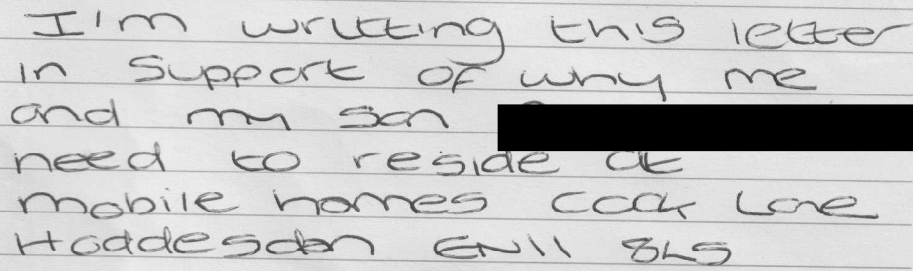 I'm writting this letter
in support of why me
and my son
need to reside at
mobile homes Cock Lane
Hoddesdon EN11 8LS